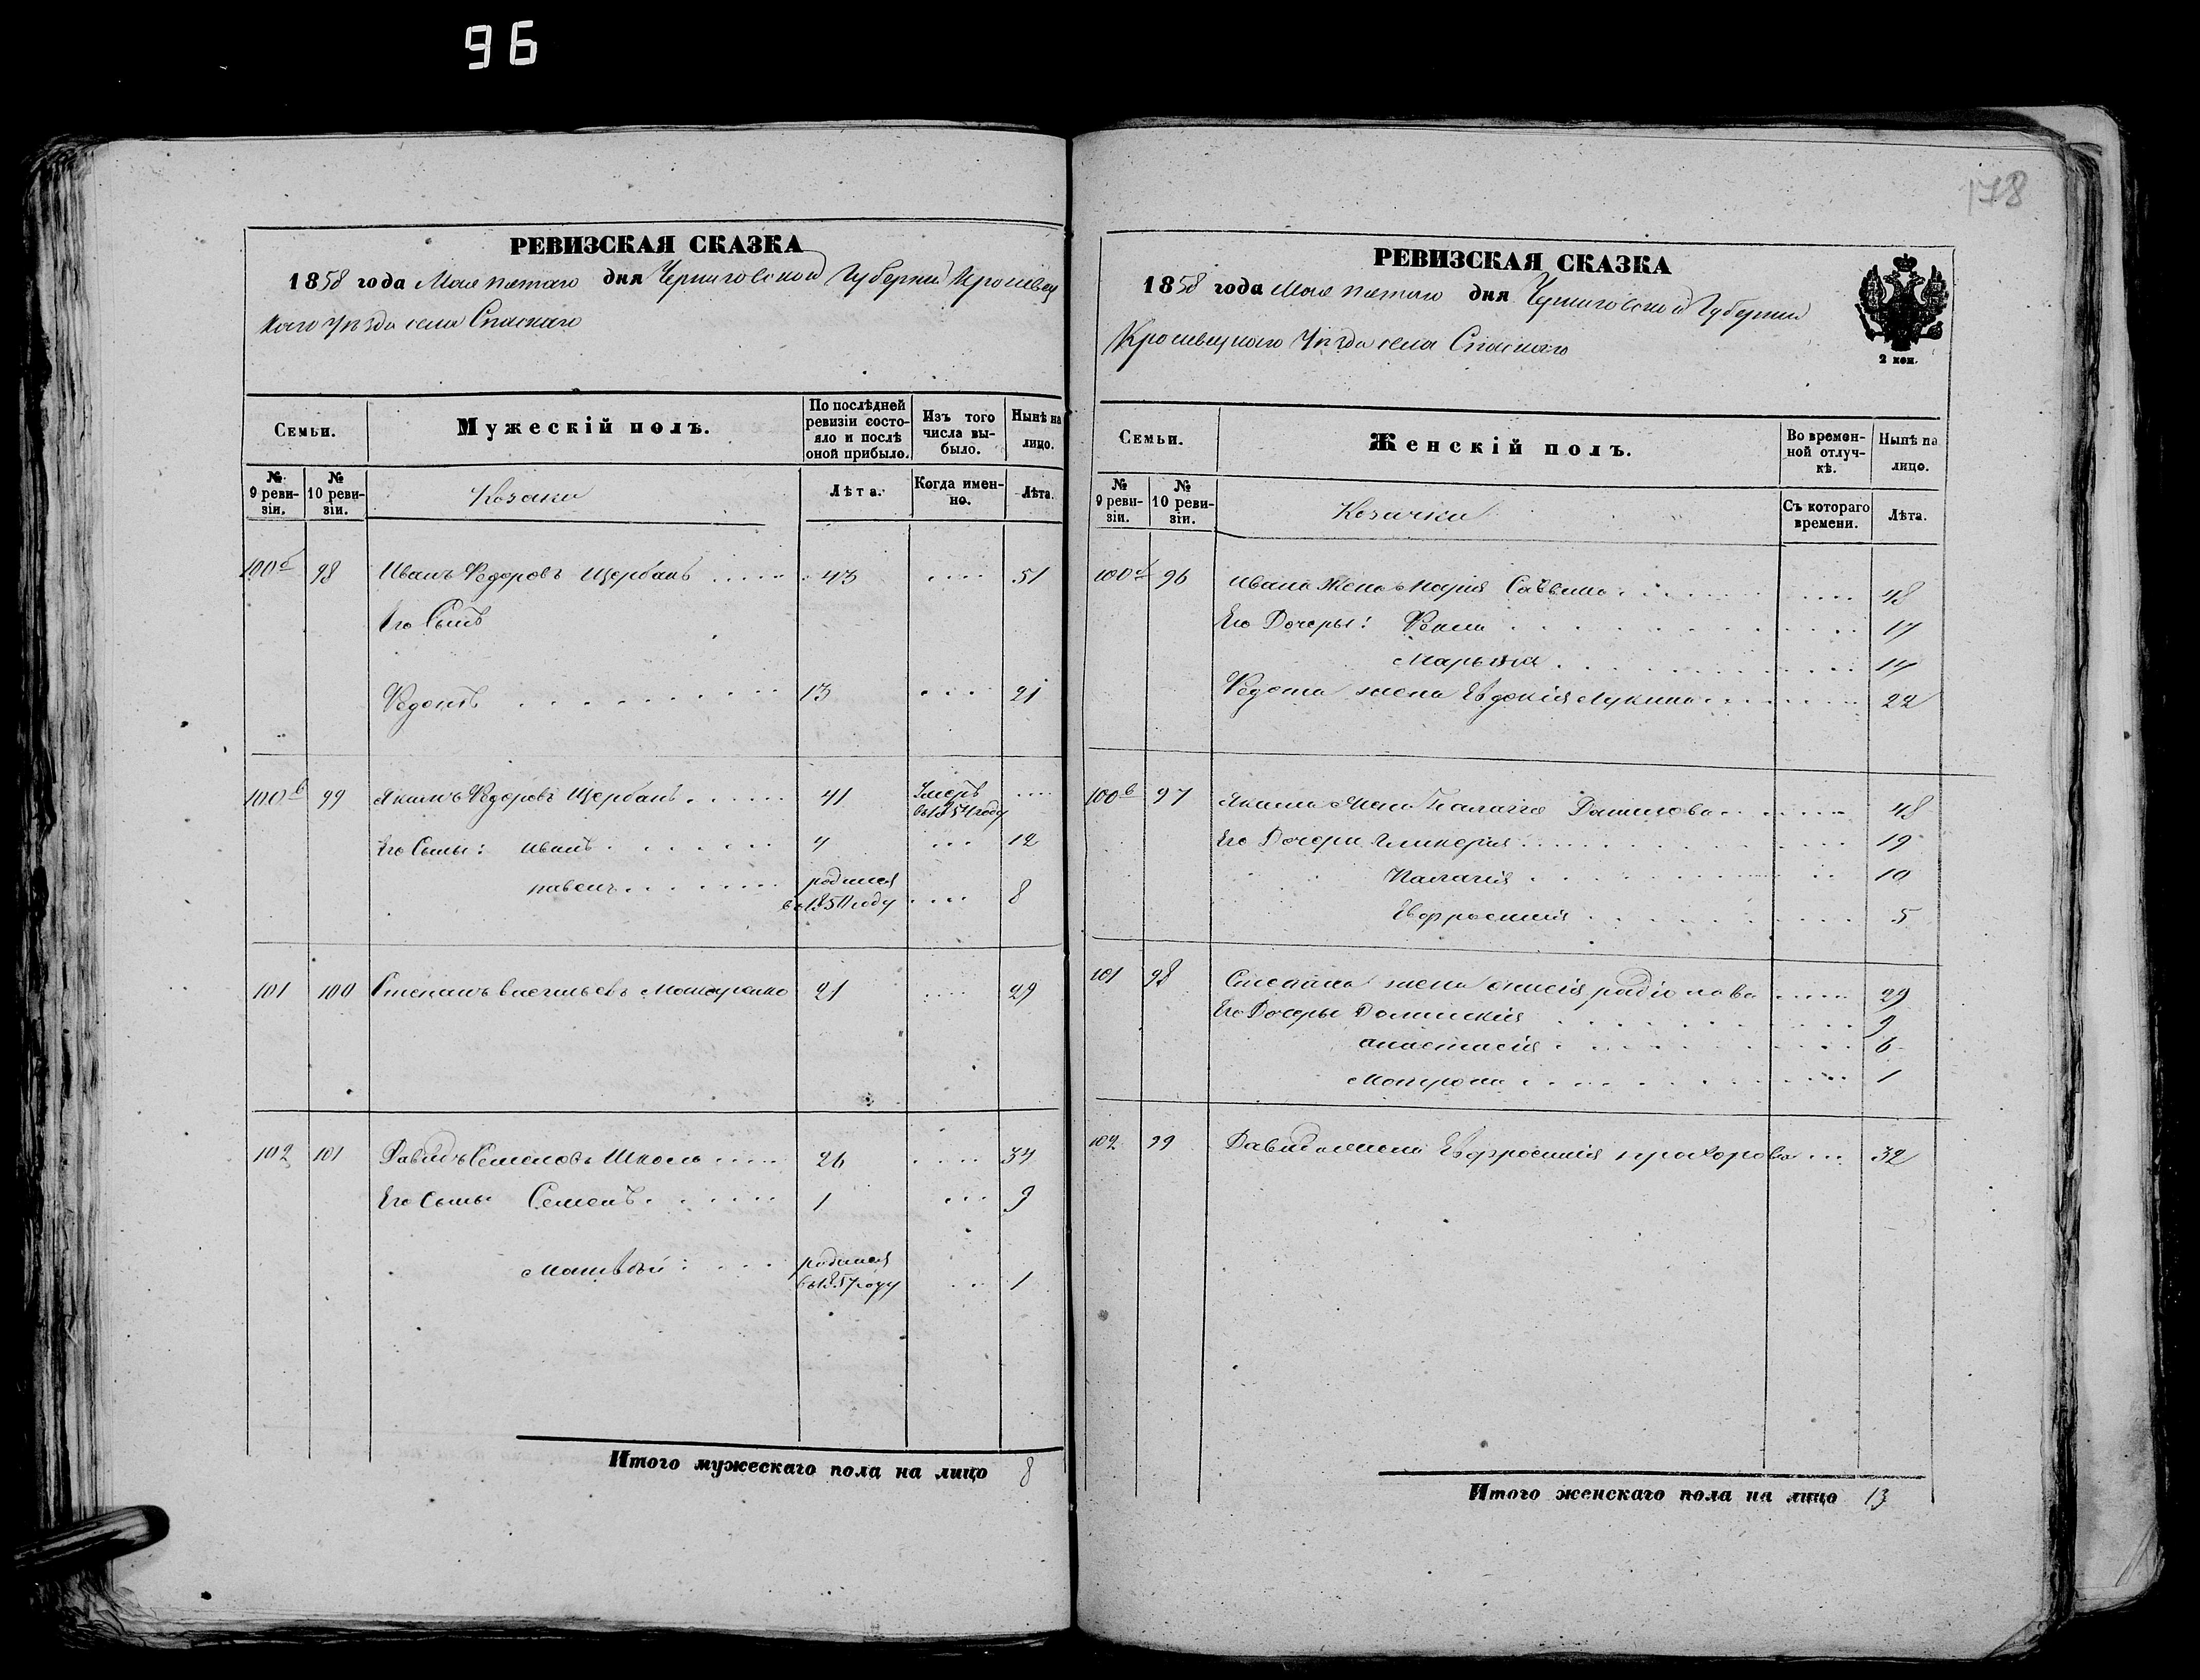 96
178
РЕВИЗСКАЯ СКАЗКА
1858 года Мая пятаго дня Черниговской Губерніи Кролевец
каго Уѣзда села Спаскаго
Семьи.
Мужескій полъ.
По послѣдней ревизіи состояло и послѣ оной прибыло.
Изъ того числа выбыло.
Нынѣ на лицо.
№ 9 ревизіи.
№ 10 ревизіи.
Козаки
Лѣта.
Когда именно.
Лѣта.
100б 98 Иванъ Федоровъ Щербакъ 43 .... 51
Его Сынъ
Федотъ 13 ... 21
100в 99 Якимъ Федоровъ Щербакъ 41 Умеръ в 1854 году ....
Его Сыны: иванъ 4 ... 12
павелъ родился в 1851 году .... 8
101 100 Степанъ васильевъ 21 .... 29
102 101 Давидъ Семеновъ Школа 26 .... 34
Его Сыны Семенъ 1 ... 9
Матвѣй: родился в 1857 году ... 1
Итого мужескаго пола на лицо 8
РЕВИЗСКАЯ СКАЗКА
1858 года Мая пятаго дня Черниговской Губерніи
Кролевецкаго Уѣзда села Спаскаго
2 коп.
Семьи.
Женскій полъ.
Во временной отлучкѣ.
Нынѣ на лицо.
№ 9 ревизіи.
№ 10 ревизіи.
Козачки
Съ котораго времени.
Лѣта.
100б 96 ивана Жена марія Саввина .... 48
Его Дочеры: Фекла 17
Марьяна 14
Федота жена Евдокія Лукина 22
100в 97 Якима Жена Палагія Данилова 48
Его Дочери Гликерія 19
Палагія 10
Евфросинія 5
101 98 Степана жена онисія радіонова 29
Его Дочеры Домникія 9
анастасія 6
Матрона 1
102 99 Давида жена Евфросинія прохорова ... 32
Итого женскаго пола на лицо 13